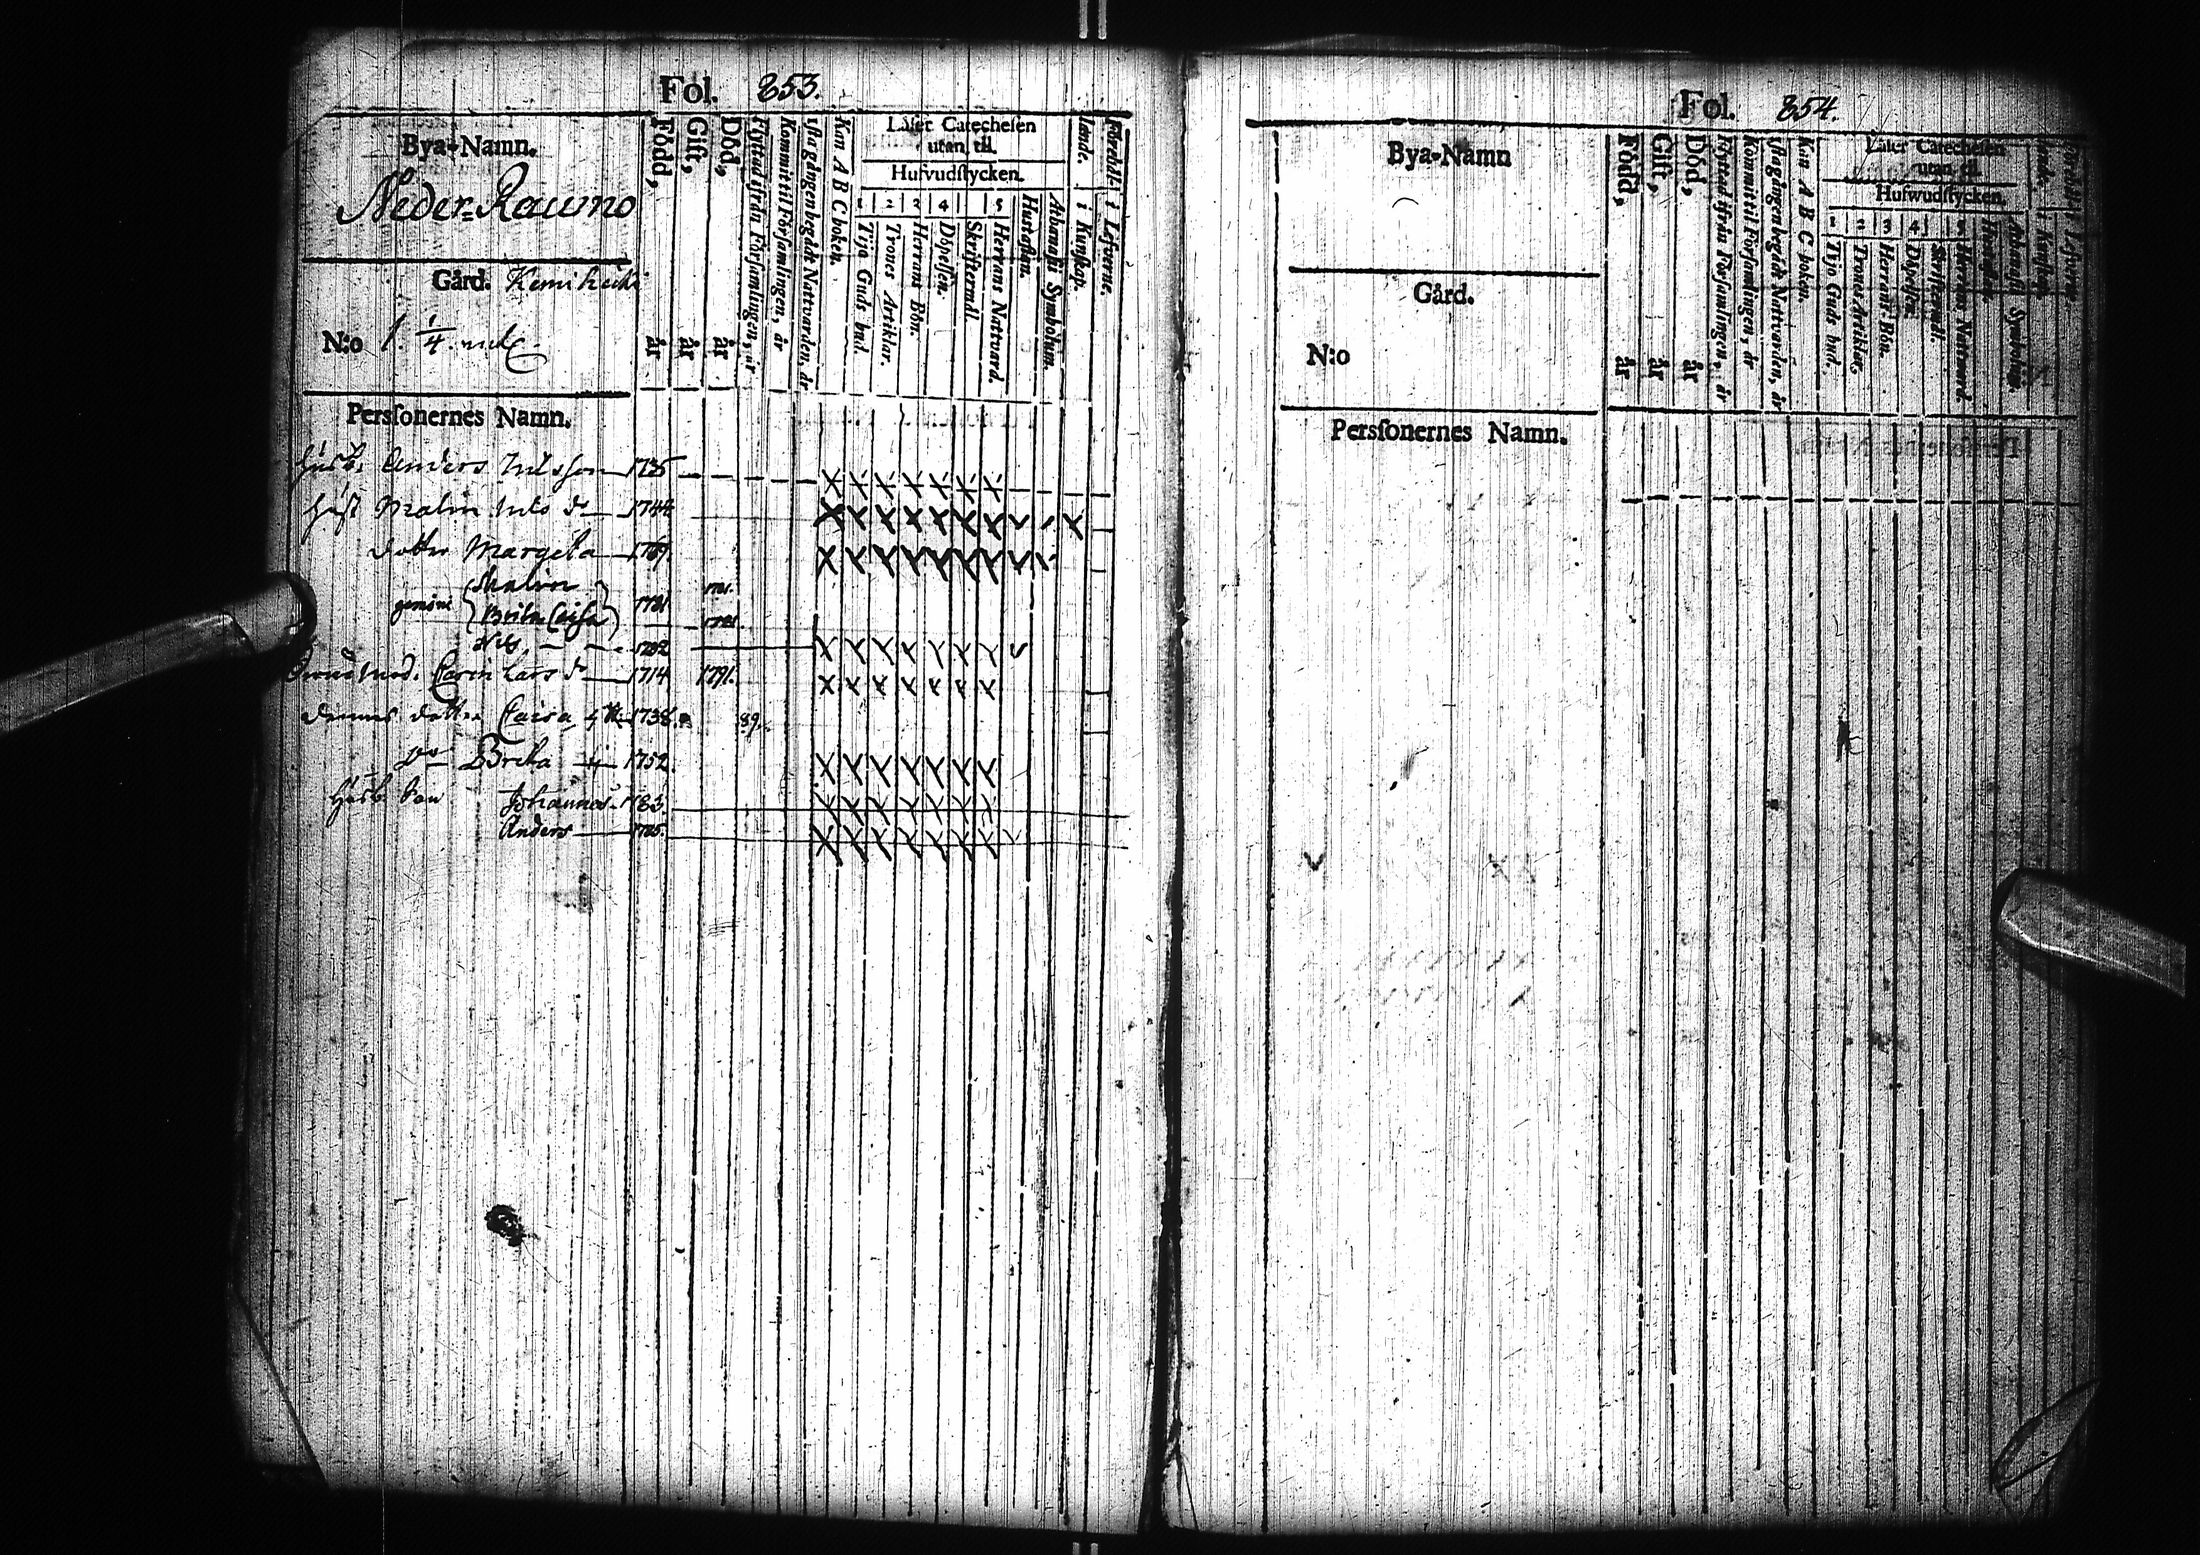 Fol. 853.
Bya-Namn.
Neder-Rauno
Gård. Kemiheiki
N:o 1. 1/4. mtl.
Född, år
Gift, år
Död, år
Flyttad ifrån Församlingen, år
Kommit til Församlingen, år
1sta gången begådt Nattvarden, år
Kan A B C boken.
Läser Catechesen
utan til
Hufvudstycken.
1 2 3 4 5
Tijo Guds bud.
Trones Artiklar.
Herrans Bön.
Döpelsen.
Skriftermål.
Herrans Nattvard.
Hustaflan.
Athanasii Symbolum.
i Kunskap.
i Lefverne.
Personernes Namn.
Husb. Anders Nilsson 1735
Hust Malin Nils dr 1744
dotter Margeta 1769.
gemini Malin 1781 1781.
Brita Caisa
Nils 1782
Carin Lars dr 1714 1791.
dennes dotter Caisa 1738. 89.
Brita 1752.
Husb. Son Johannes 1783.
Anders 1785.
Fol. 854.
Bya-Namn
Gård.
N:o
Född, år
Gift, år
Död, år
Flyttad ifrån Församlingen, år
Kommit til Församlingen, år
1sta gången begådt Nattvarden, år
Kan A B C boken.
Läser Catechesen
utan til
Hufwudstycken.
1 2 3 4 5
Tijo Guds bud.
Trones Artiklar.
Herrans Bön.
Döpelsen.
Skriftermål.
Herrans Nattvard.
Personernes Namn.